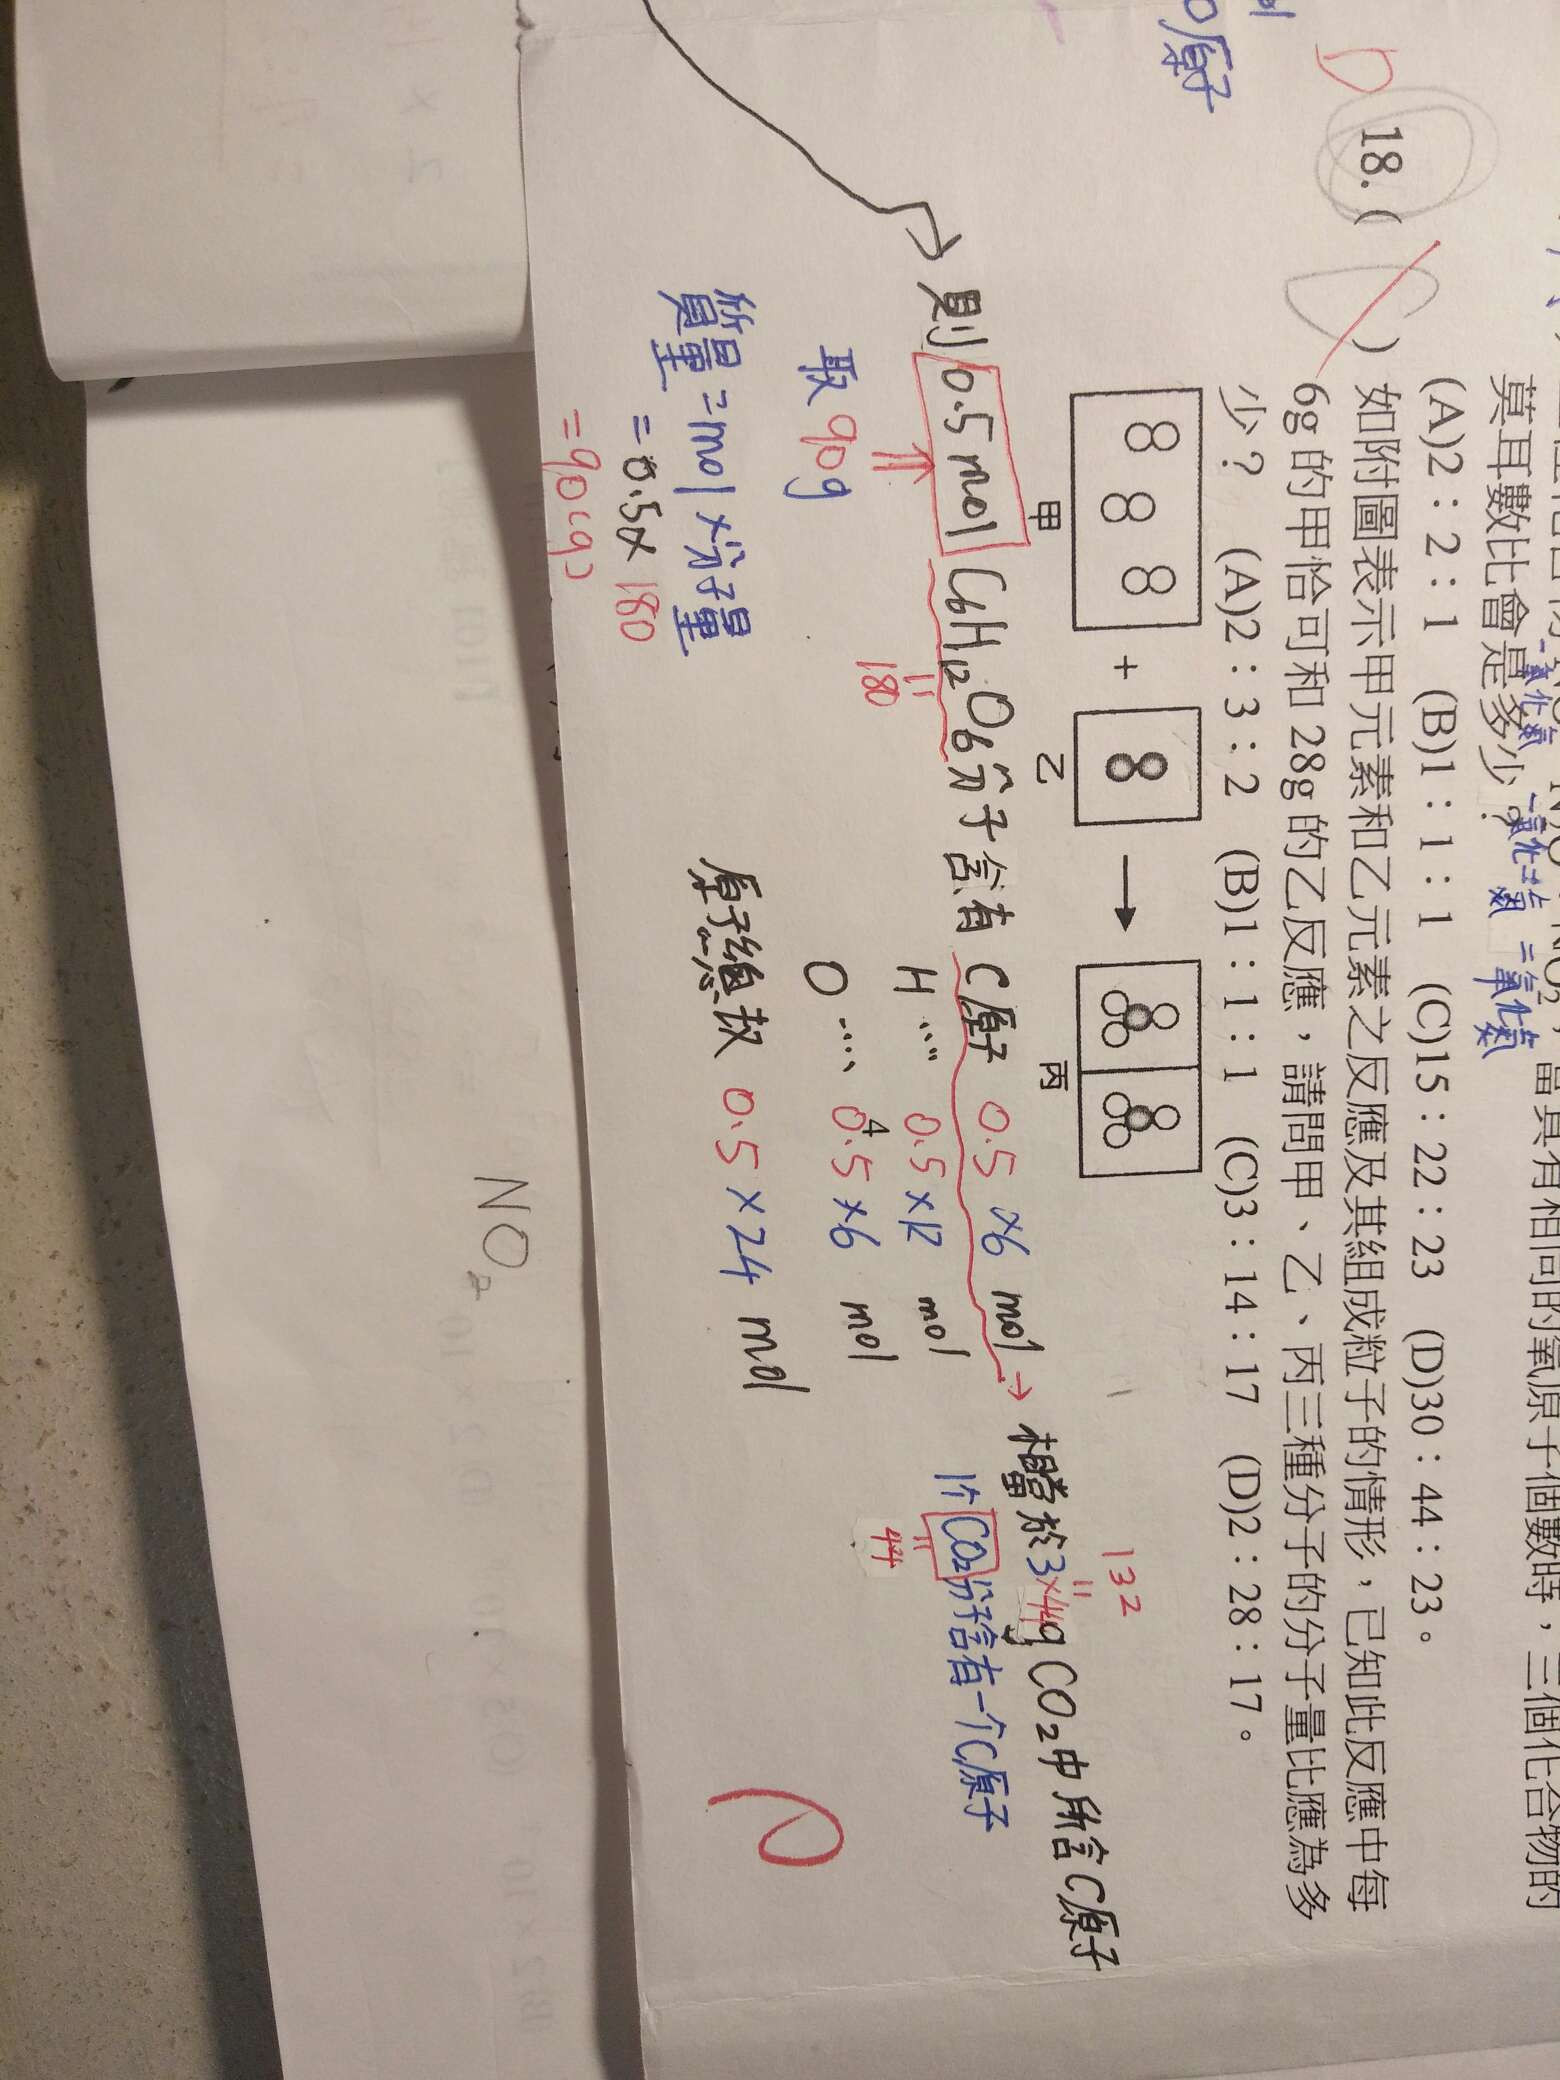 原子
D
莫耳數比會是多少?
一氧化氮 一氧化二氮 二氧化氮
(A)2:2:1 (B)1:1:1 (C)15:22:23 (D)30:44:23。
18.( C ) 如附圖表示甲元素和乙元素之反應及其組成粒子的情形,已知此反應中每
6g 的甲恰可和 28g 的乙反應,請問甲、乙、丙三種分子的分子量比應為多
少? (A)2:3:2 (B)1:1:1 (C)3:14:17 (D)2:28:17。
+ →
甲 乙 丙
132
則 0.5 mol C6H12O6分子含有 C原子 0.5 ×6 mol → 相當於3×44g CO2中所含C原子
180
H .... 0.5 ×12 mol
1个CO2分子含有一个C原子
44
取 90g
O .... 0.5 ×6 mol
質量=mol×分子量
=0.5×180
=90(g)
原子總數 0.5 ×24 mol
NO2